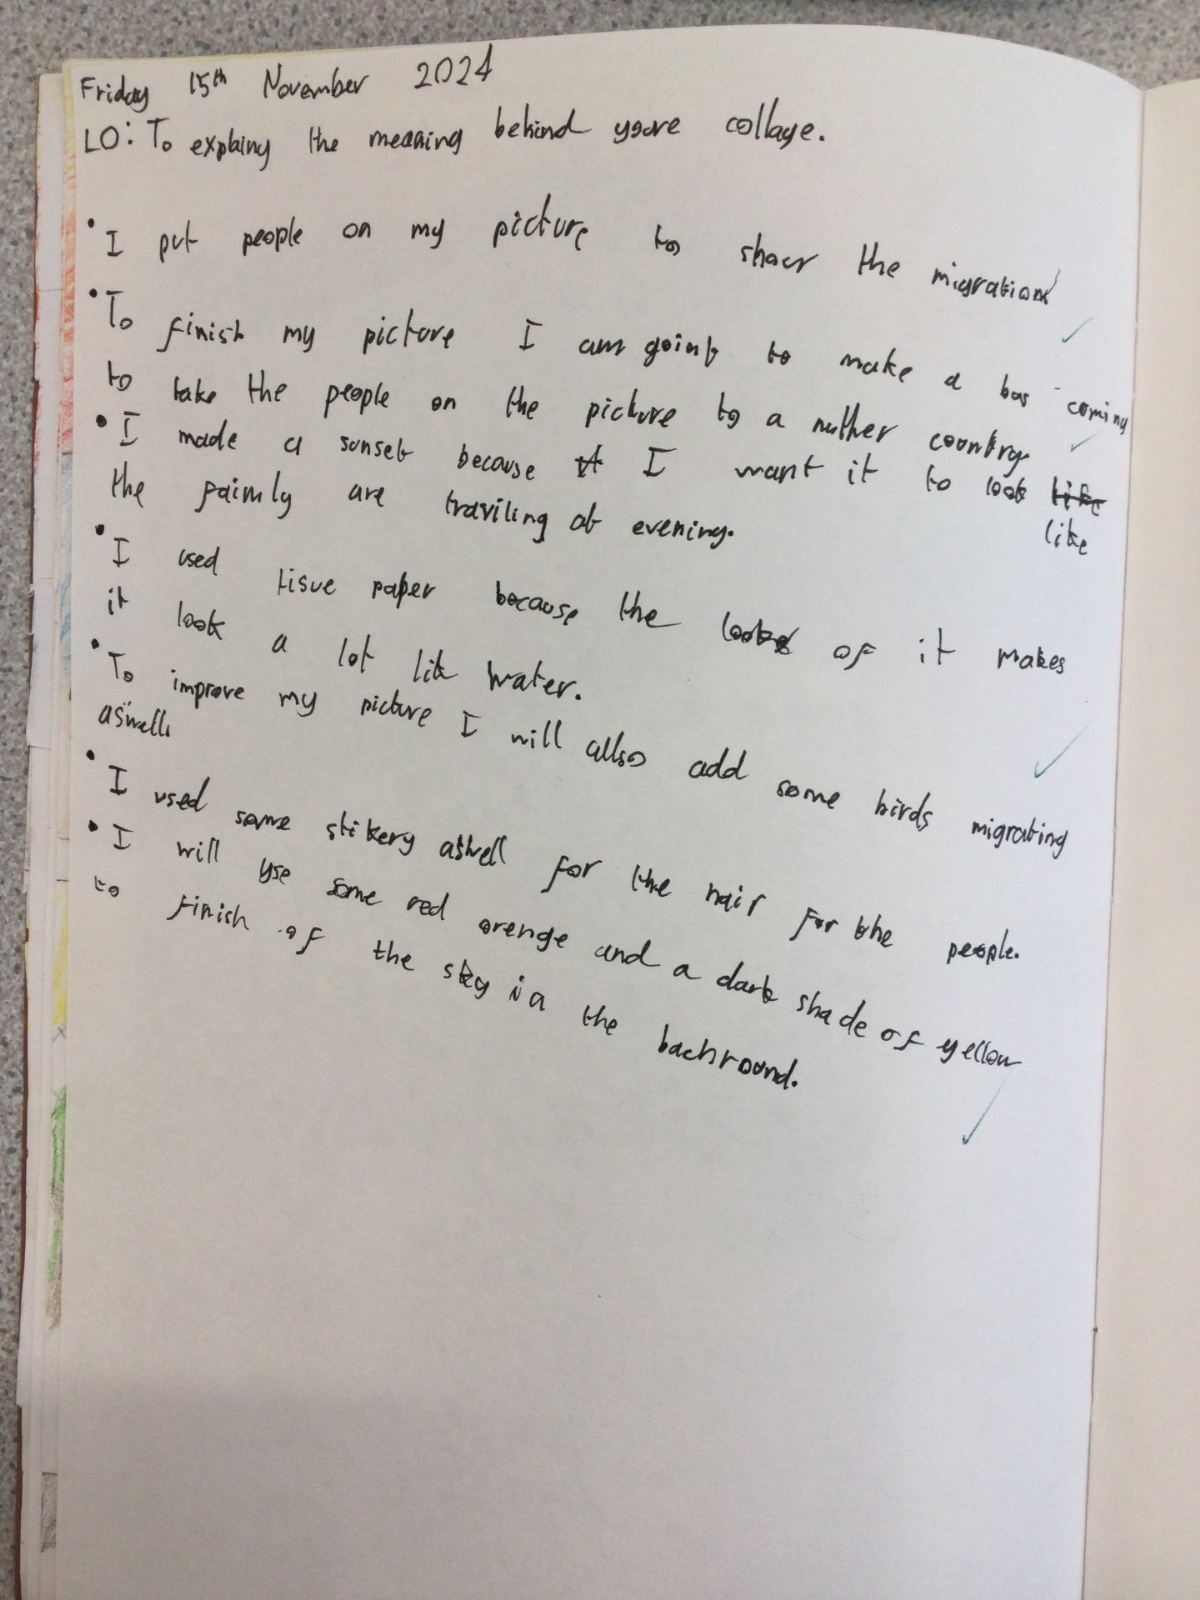 Friday 15th November 2024
LO: To explainy the meaning behind yoore collage.
• I put people on my picture to show the migration
• To finish my picture I am goint to make a bus coming
to take the people on the picture to a nuther country
• I made a sunset because it I want it to look like
like
the faimly are traviling at evening.
• I used tisue paper because the look of it makes
it look a lot lik water.
• To improve my picture I will allso add some birds migrating
aswell.
• I used some stikery aswell for the hair for the people.
• I will use some red orenge and a dark shade of yellow
to finish of the sky in the bachroond.